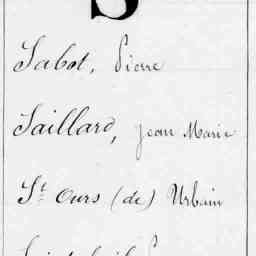 S
Sabot, Pierre
Saillard, Jean Marie
St Ours (de) Urbain